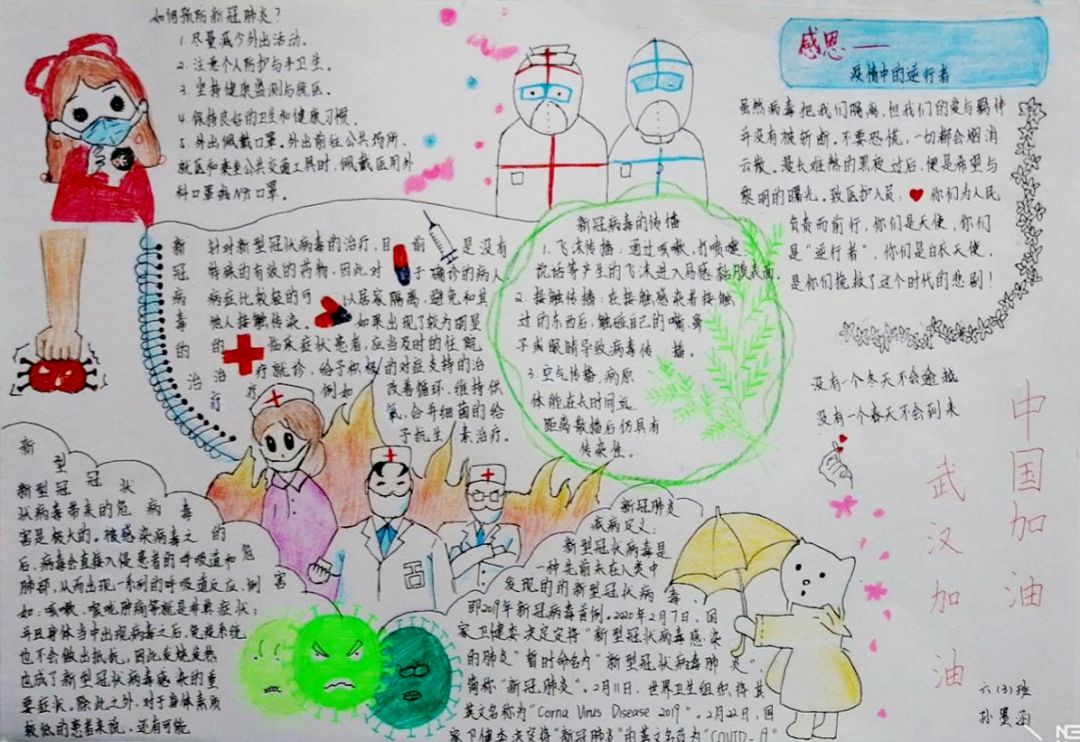 如何预防新冠肺炎？
1.尽量减少外出活动。
2.注意个人防护与手卫生。
3.坚持健康监测与就医。
4.保持良好的卫生和健康习惯。
5.外出佩戴口罩。外出前往公共场所、
就医和乘坐公共交通工具时，佩戴医用外
科口罩或N95口罩。
感恩——
疫情中的逆行者
虽然病毒把我们隔离，但我们的爱与羁绊
并没有被斩断。不要恐慌，一切都会烟消
云散。漫长难熬的黑夜过后，便是希望与
黎明的曙光。致医护人员：你们为人民
负责而前行，你们是天使，你们
是“逆行者”，你们是白衣天使，
是你们挽救了这个时代的悲剧！
没有一个冬天不会逾越
没有一个春天不会到来
新冠病毒的治疗
针对新型冠状病毒的治疗，目前是没有
特殊的有效的药物，因此对于确诊的病人
病症比较轻的可以居家隔离，避免和其
他人接触传染。如果出现了较为明显
的临床症状患者，应当及时的住院
治疗就诊，给予积极的对症支持的治
疗，例如改善循环、维持供
氧，合并细菌的给
予抗生素治疗。
新冠病毒的传播
1.飞沫传播：通过咳嗽、打喷嚏、
说话等产生的飞沫进入易感黏膜表面。
2.接触传播：在接触感染者接触
过的东西后，触碰自己的嘴、鼻
子或眼睛导致病毒传播。
3.空气传播，病原
体能在长时间远
距离散播后仍具有
传染性。
新型冠状病毒的危害
新型冠状病毒带来的危
害是极大的。被感染病毒之
后，病毒会直接入侵患者的呼吸道和
肺部，从而出现一系列的呼吸道反应，例
如：咳嗽、喉咙肿痛等就是非典症状；
并且身体当中出现病毒之后，免疫系统
也不会做出抵抗，因此发烧发热
也成了新型冠状病毒感染的重
要症状。除此之外，对于身体素质
较低的患者来说，还有可能
新冠肺炎
疾病定义：
新型冠状病毒是
一种先前未在人类中
发现的的新型冠状病毒
即2019年新冠病毒首例。2020年2月7日，国
家卫健委决定将“新型冠状病毒感染
的肺炎”暂时命名为“新型冠状病毒肺炎”
简称“新冠肺炎”。2月11日，世界卫生组织将其
英文名称为“Corna Virus Disease 2019”。2月22日，国
家卫健委决定将“新冠肺炎”的英文名改为“COVID-19
中国加油
武汉加油
六(3)班
孙墨涵